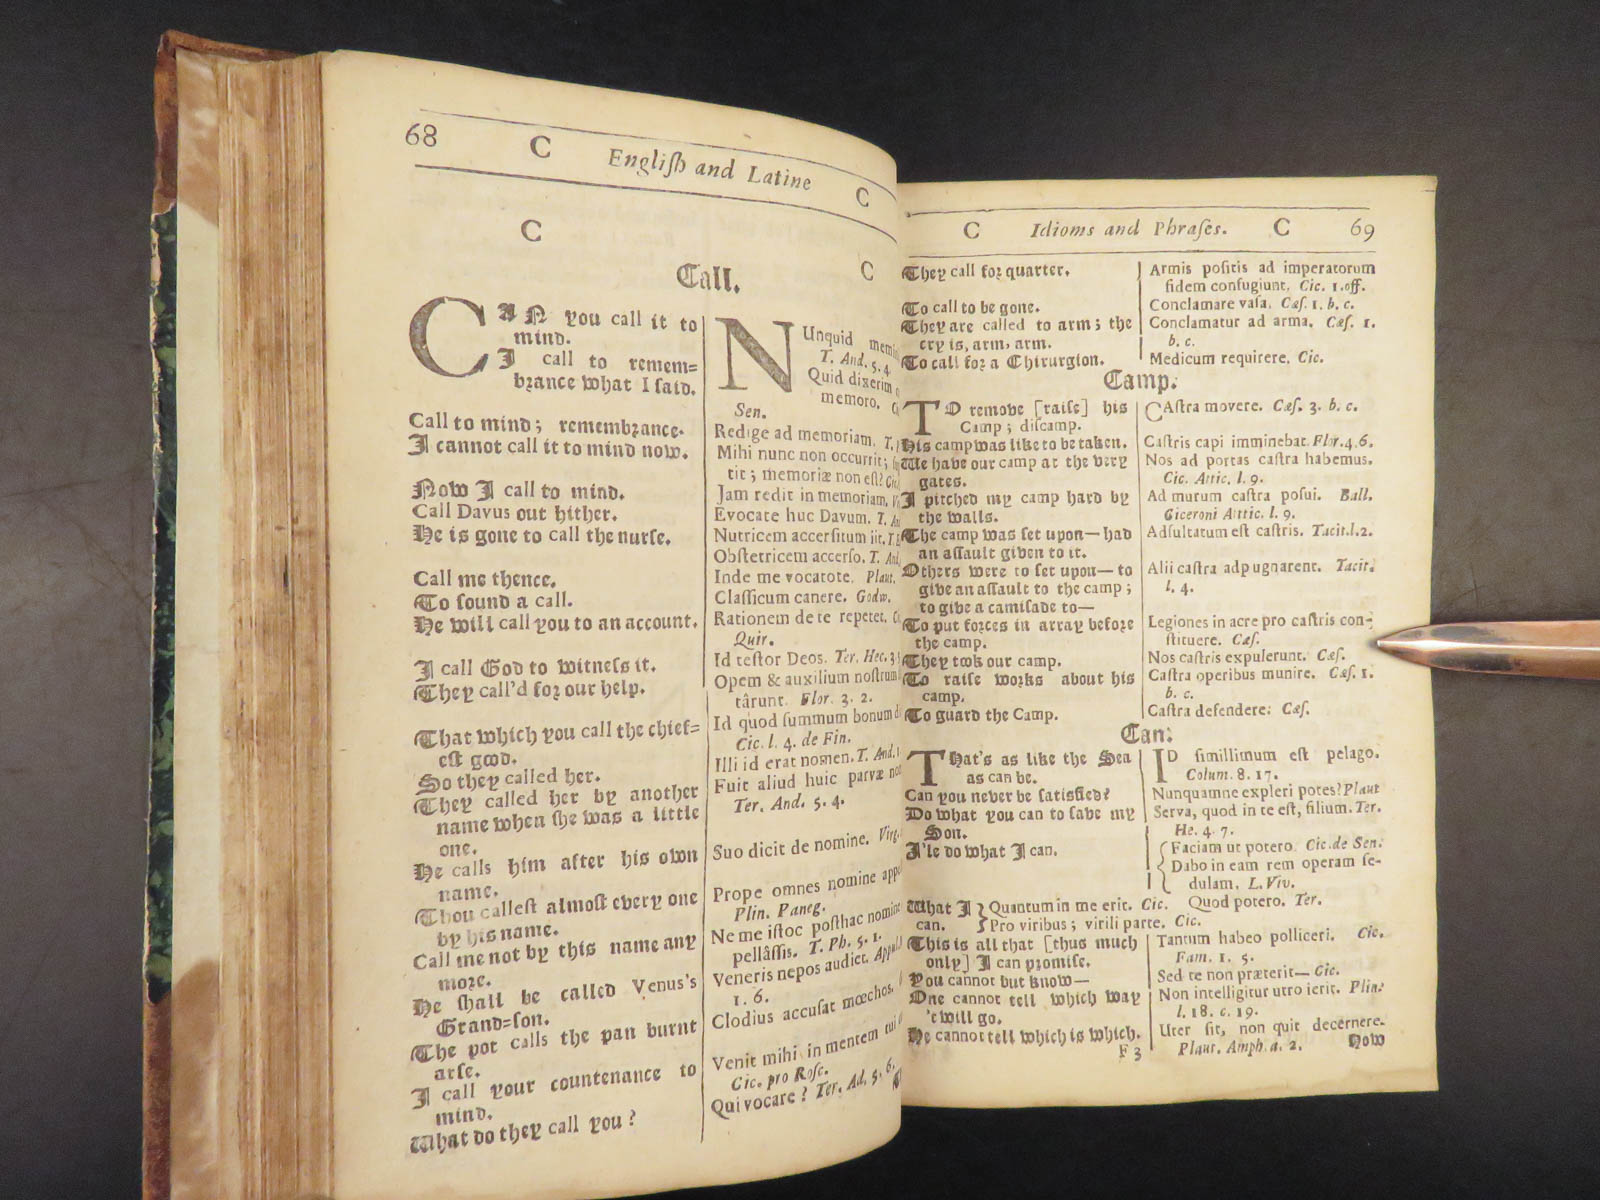 68
C English and Latine C
C
C
Call.
CAN you call it to
mind.
I call to remem=
brance what I said.
Call to mind; remembrance.
I cannot call it to mind now.
Now I call to mind.
Call Davus out hither.
He is gone to call the nurse.
Call me thence.
To sound a call.
He will call you to an account.
I call God to witness it.
They call'd for our help.
That which you call the chief=
est good.
So they called her.
They called her by another
name when she was a little
one.
He calls him after his own
name.
Thou callest almost every one
by his name.
Call me not by this name any
more.
He shall be called Venus's
Grand=son.
The pot calls the pan burnt
arse.
I call your countenance to
mind.
What do they call you?
NUnquid
T. And. 5. 4.
Quid dixerim
memoro.
Sen.
Redige ad memoriam. T.
Mihi nunc non occurrit;
tit; memoriæ non est? Cic.
Jam redit in memoriam.
Evocate huc Davum. T.
Nutricem accersitum iit. T.
Obstetricem accerso. T. And.
Inde me vocatote. Plaut.
Classicum canere. Godw.
Rationem de te repetet.
Quir.
Id testor Deos. Ter. Hec. 3.
Opem & auxilium nostrum
târunt. Flor. 3. 2.
Id quod summum bonum
Cic. l. 4. de Fin.
Illi id erat nomen. T. And.
Fuit aliud huic parvæ
Ter. And. 5. 4.
Suo dicit de nomine. Virg.
Prope omnes nomine
Plin. Paneg.
Ne me istoc posthac nomine
pellâssis. T. Ph. 5. 1.
Veneris nepos audiet.
1. 6.
Clodius accusat mœchos.
Venit mihi in mentem tui
Cic. pro Rosc.
Qui vocare? Ter. Ad. 5. 6.
C Idioms and Phrases. C 69
They call for quarter.
To call to be gone.
They are called to arm; the
cry is, arm, arm.
To call for a Chirurgion.
Armis positis ad imperatorum
fidem confugiunt. Cic. 1. off.
Conclamare vasa. Cæs. 1. b. c.
Conclamatur ad arma. Cæs. 1.
b. c.
Medicum requirere. Cic.
Camp.
TO remove [raise] his
Camp; discamp.
His camp was like to be taken.
We have our camp at the very
gates.
I pitched my camp hard by
the walls.
The camp was set upon—had
an assault given to it.
Others were to set upon—to
give an assault to the camp;
to give a camisade to—
To put forces in array before
the camp.
They took our camp.
To raise works about his
camp.
To guard the Camp.
CAstra movere. Cæs. 3. b. c.
Castris capi imminebat. Flor. 4. 6.
Nos ad portas castra habemus.
Cic. Attic. l. 9.
Ad murum castra posui. Ball.
Ciceroni Attic. l. 9.
Adsultatum est castris. Tacit. l. 2.
Alii castra adpugnarent. Tacit.
l. 4.
Legiones in acre pro castris con-
stituere. Cæs.
Nos castris expulerunt. Cæs.
Castra operibus munire. Cæs. 1.
b. c.
Castra defendere. Cæs.
Can.
That's as like the Sea
as can be.
Can you never be satisfied?
Do what you can to save my
Son.
I'le do what I can.
ID simillimum est pelago.
Colum. 8. 17.
Nunquamne expleri potes? Plaut
Serva, quod in te est, filium. Ter.
He. 4. 7.
Faciam ut potero. Cic. de Sen.
Dabo in eam rem operam se-
dulam. L. Viv.
What I Quantum in me erit. Cic. Quod potero. Ter.
can. Pro viribus; virili parte. Cic.
This is all that [thus much
only] I can promise.
You cannot but know—
One cannot tell which way
't will go.
He cannot tell which is which.
F 3
Tantum habeo polliceri. Cic.
Fam. 1. 5.
Sed te non præterit— Cic.
Non intelligitur utro ierit. Plin.
l. 18. c. 19.
Uter sit, non quit decernere.
Plaut. Amph. a. 2. Now